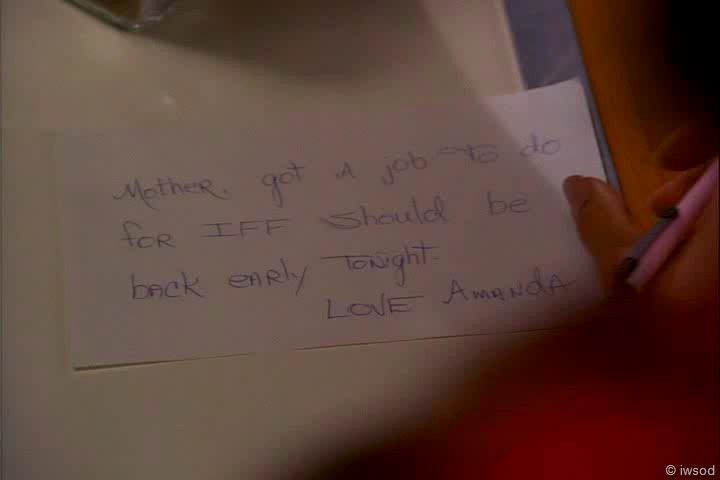 Mother. got A job to do
for IFF Should be
back early Tonight.
LOVE AmandA
© iwsod